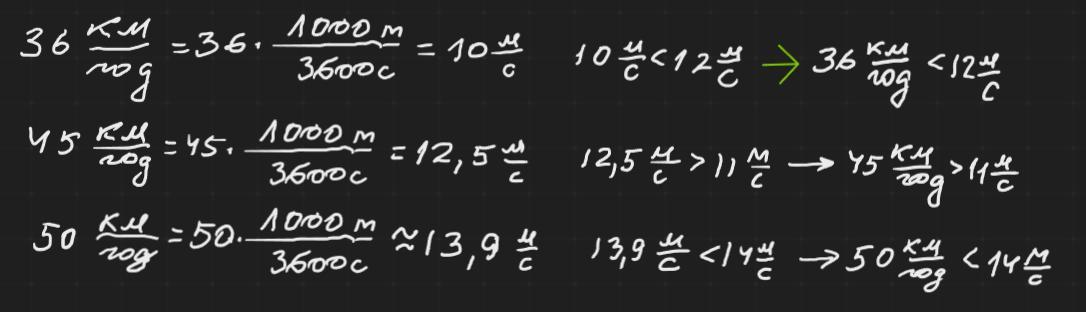 36 км/год = 36 · 1000 м/3600 с = 10 м/с 10 м/с < 12 м/с → 36 км/год < 12 м/с
45 км/год = 45 · 1000 м/3600 с = 12,5 м/с 12,5 м/с > 11 м/с → 45 км/год > 11 м/с
50 км/год = 50 · 1000 м/3600 с ≈ 13,9 м/с 13,9 м/с < 14 м/с → 50 км/год < 14 м/с